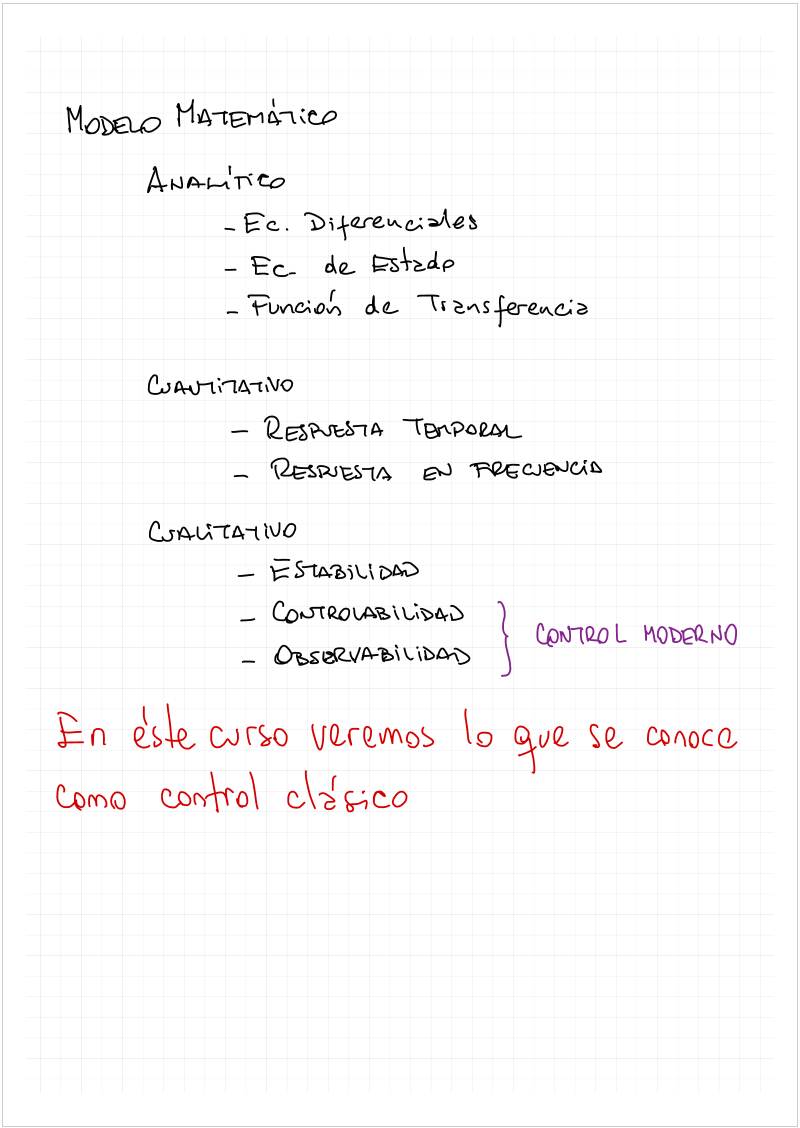 MODELO MATEMÁTICO
ANALÍTICO
- Ec. Diferenciales
- Ec. de Estado
- Función de Transferencia
CUANTITATIVO
- RESPUESTA TEMPORAL
- RESPUESTA EN FRECUENCIA
CUALITATIVO
- ESTABILIDAD
- CONTROLABILIDAD
- OBSERVABILIDAD
CONTROL MODERNO
En éste curso veremos lo que se conoce
como control clásico